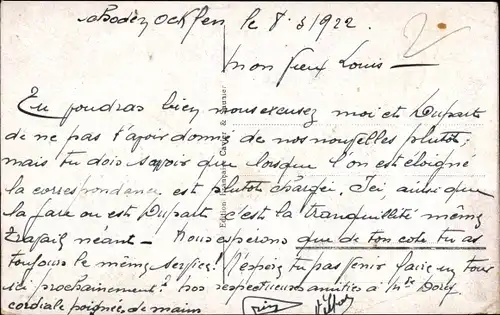 Bodenockfen, le 8.3/1922.
mon vieux Louis —
Tu voudras bien nous excusez moi et Duparte
de ne pas t'avoir donné de nos nouvelles plutôt,
mais tu dois savoir que lorsque l'on est éloigné
la correspondance est plutôt chargée. Ici, ainsi que
la gare ou est Duparte c'est la tranquillité même
travail néant — Nous espérons que de ton coté tu as
toujours le même service! J'espère tu pas venir faire un tour
ici prochainement? nos respectueuses amitiés à
cordiale poignée de main
Edition